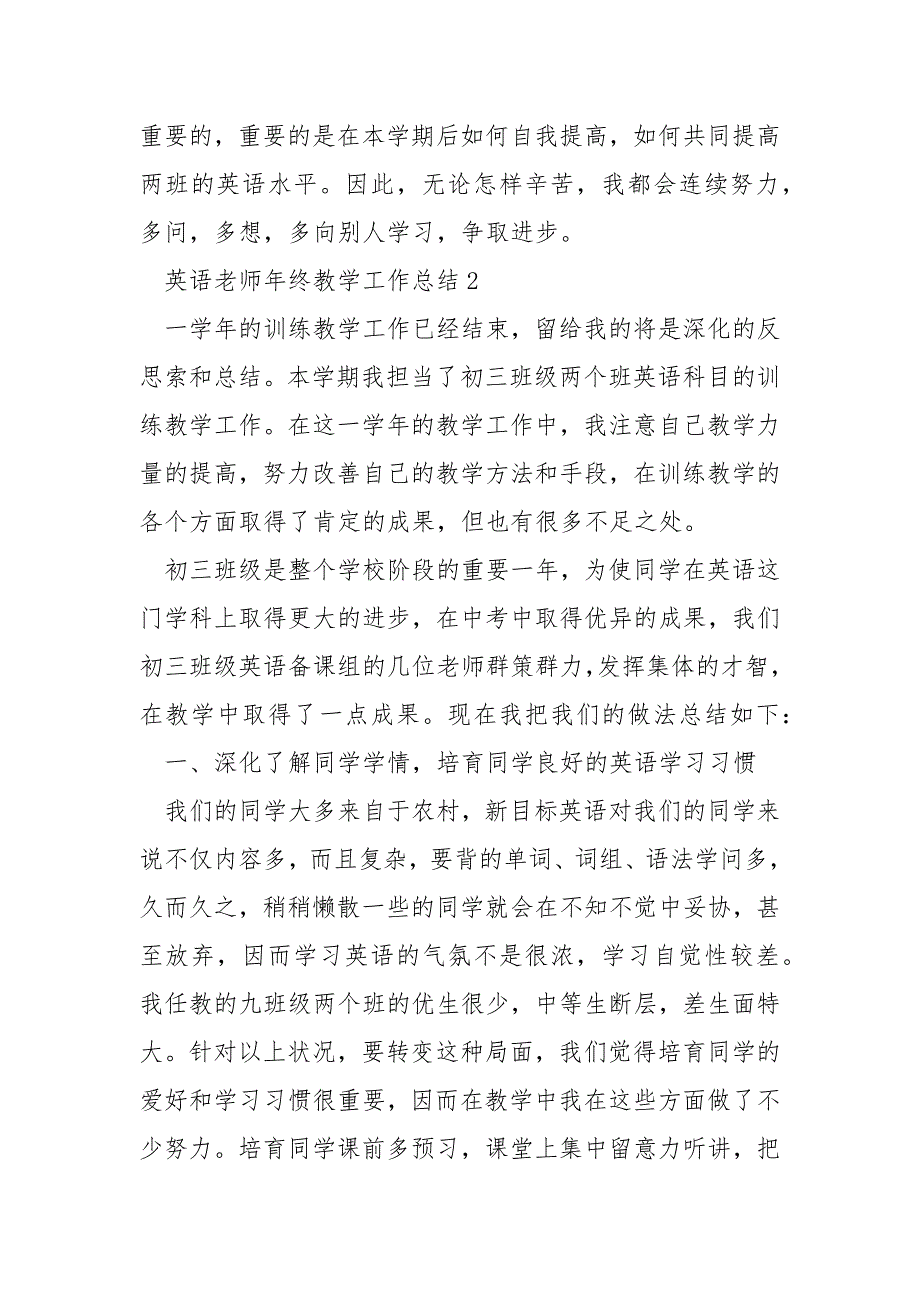 重要的，重要的是在本学期后如何自我提高，如何共同提高
两班的英语水平。因此，无论怎样辛苦，我都会连续努力，
多问，多想，多向别人学习，争取进步。
英语老师年终教学工作总结2
一学年的训练教学工作已经结束，留给我的将是深化的反
思索和总结。本学期我担当了初三班级两个班英语科目的训
练教学工作。在这一学年的教学工作中，我注意自己教学力
量的提高，努力改善自己的教学方法和手段，在训练教学的
各个方面取得了肯定的成果，但也有很多不足之处。
初三班级是整个学校阶段的重要一年，为使同学在英语这
门学科上取得更大的进步，在中考中取得优异的成果，我们
初三班级英语备课组的几位老师群策群力，发挥集体的才智，
在教学中取得了一点成果。现在我把我们的做法总结如下：
一、深化了解同学学情，培育同学良好的英语学习习惯
我们的同学大多来自于农村，新目标英语对我们的同学来
说不仅内容多，而且复杂，要背的单词、词组、语法学问多，
久而久之，稍稍懒散一些的同学就会在不知不觉中妥协，甚
至放弃，因而学习英语的气氛不是很浓，学习自觉性较差。
我任教的九班级两个班的优生很少，中等生断层，差生面特
大。针对以上状况，要转变这种局面，我们觉得培育同学的
爱好和学习习惯很重要，因而在教学中我在这些方面做了不
少努力。培育同学课前多预习，课堂上集中留意力听讲，把